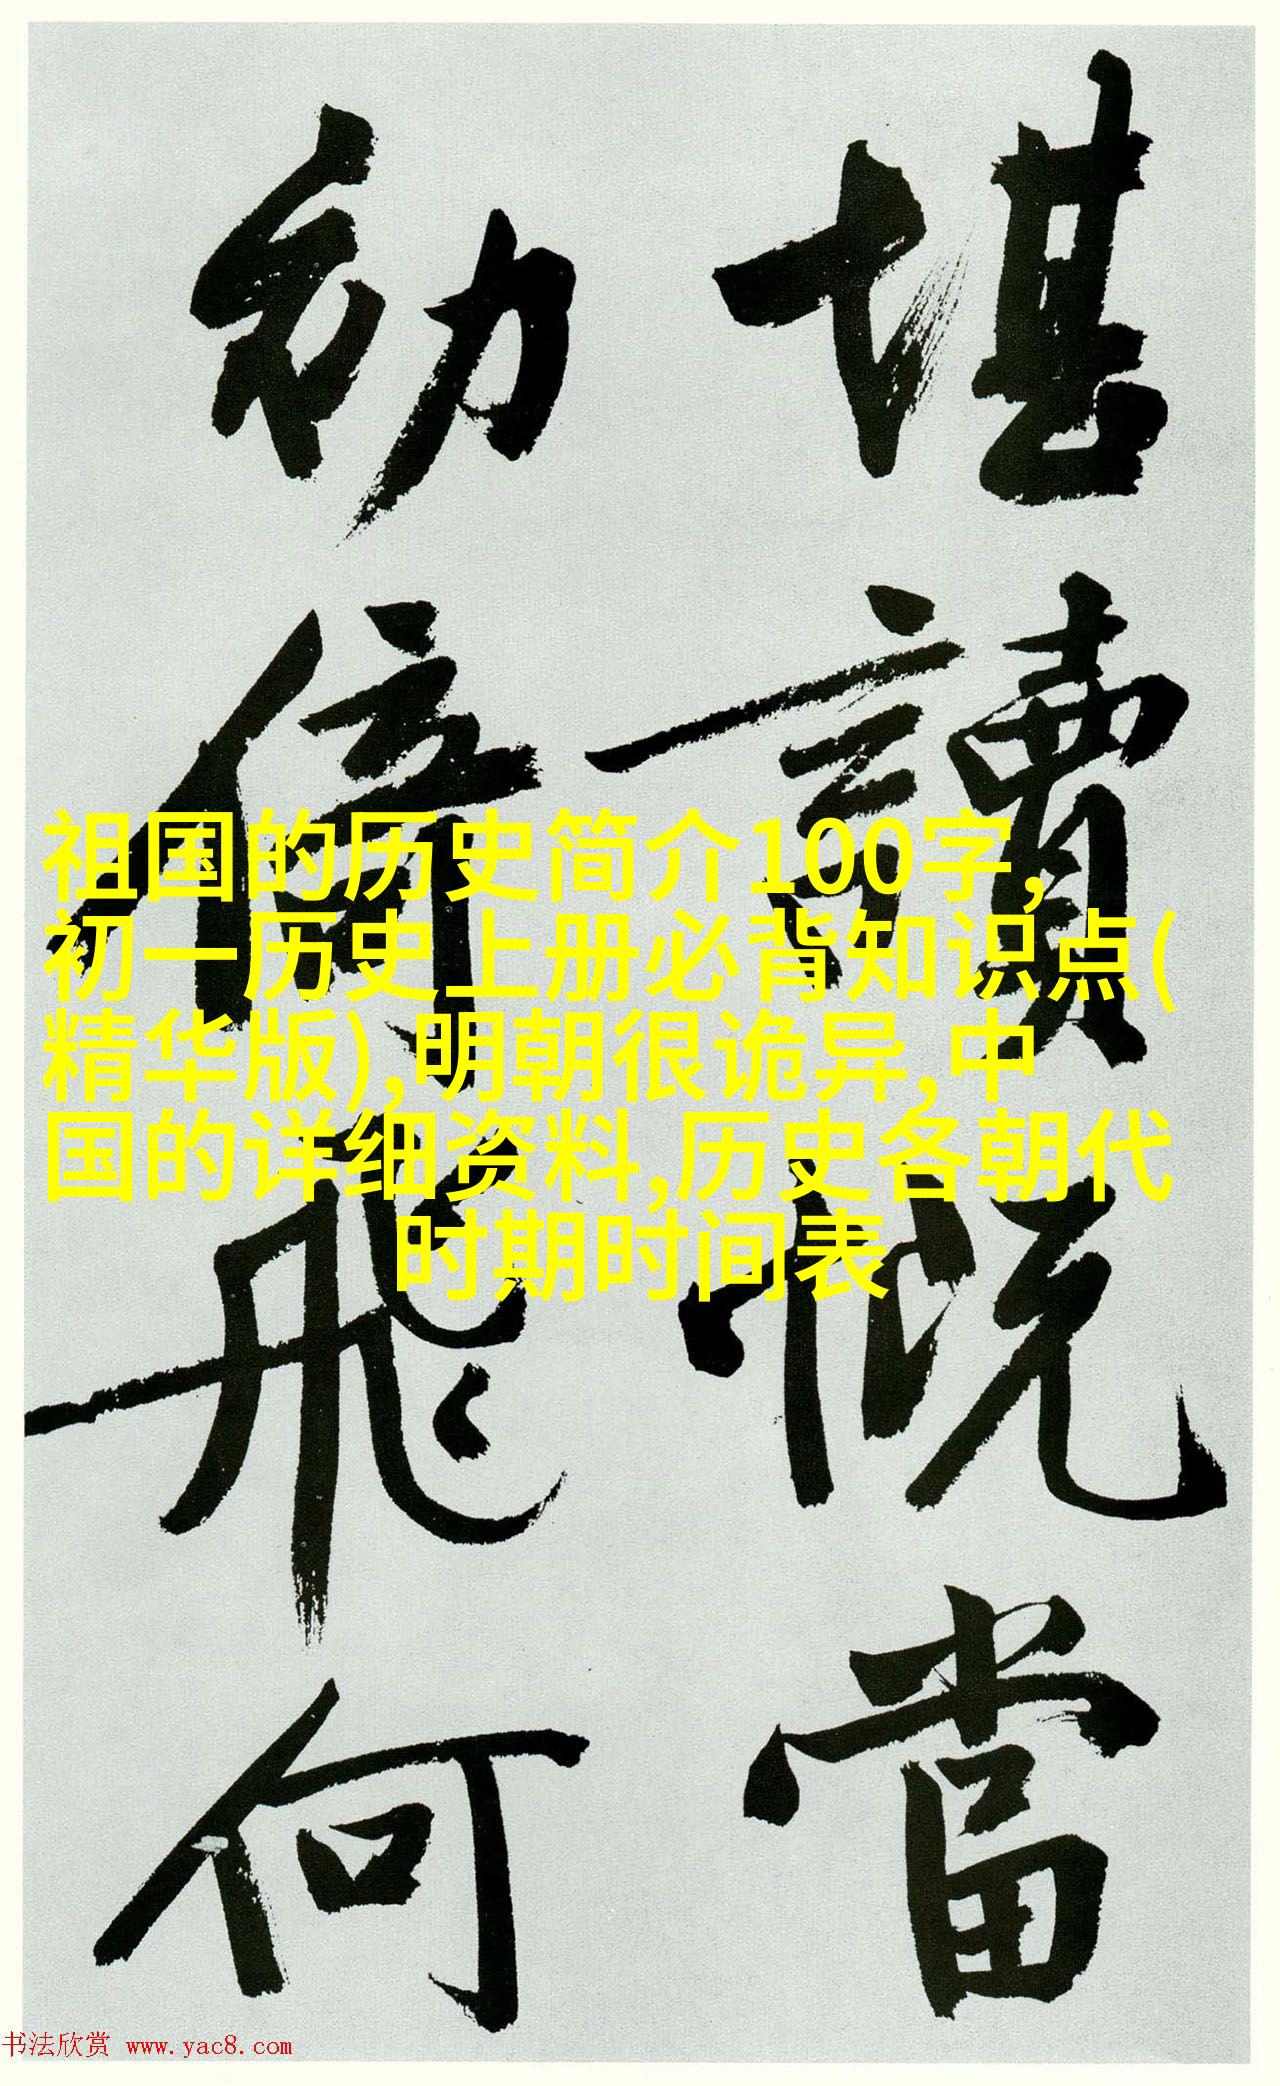 堪讀慨當
幼倚飛何
祖国的历史简介100字,
初一历史上册必背知识点(
精华版),明朝很诡异,中
国的详细资料,历史各朝代
时期时间表
书法欣赏 www.yac8.com